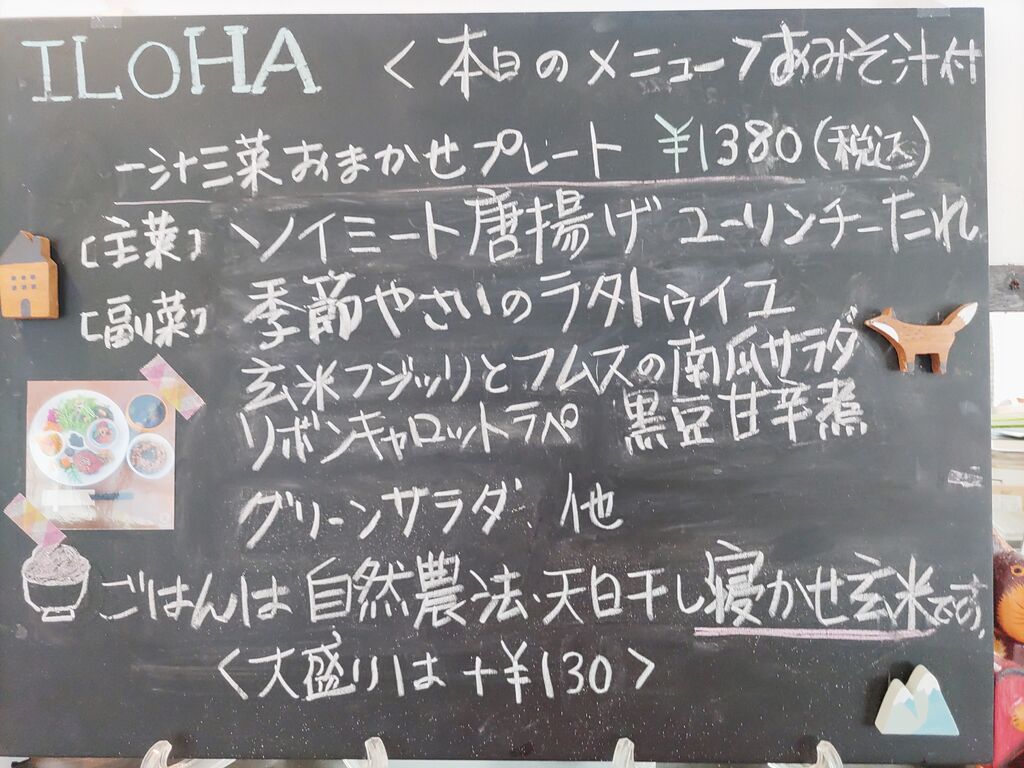 ILOHA <本日のメニュー>おみそ汁付
一汁三菜おまかせプレート ¥1380(税込)
[主菜] ソイミート唐揚げ ユーリンチーたれ
[副菜] 季節やさいのラタトゥイユ
玄米フジッリとフムスの南瓜サラダ
リボンキャロットラペ 黒豆甘辛煮
グリーンサラダ. 他
ごはんは自然農法・天日干し寝かせ玄米です.
<大盛りは+¥130>